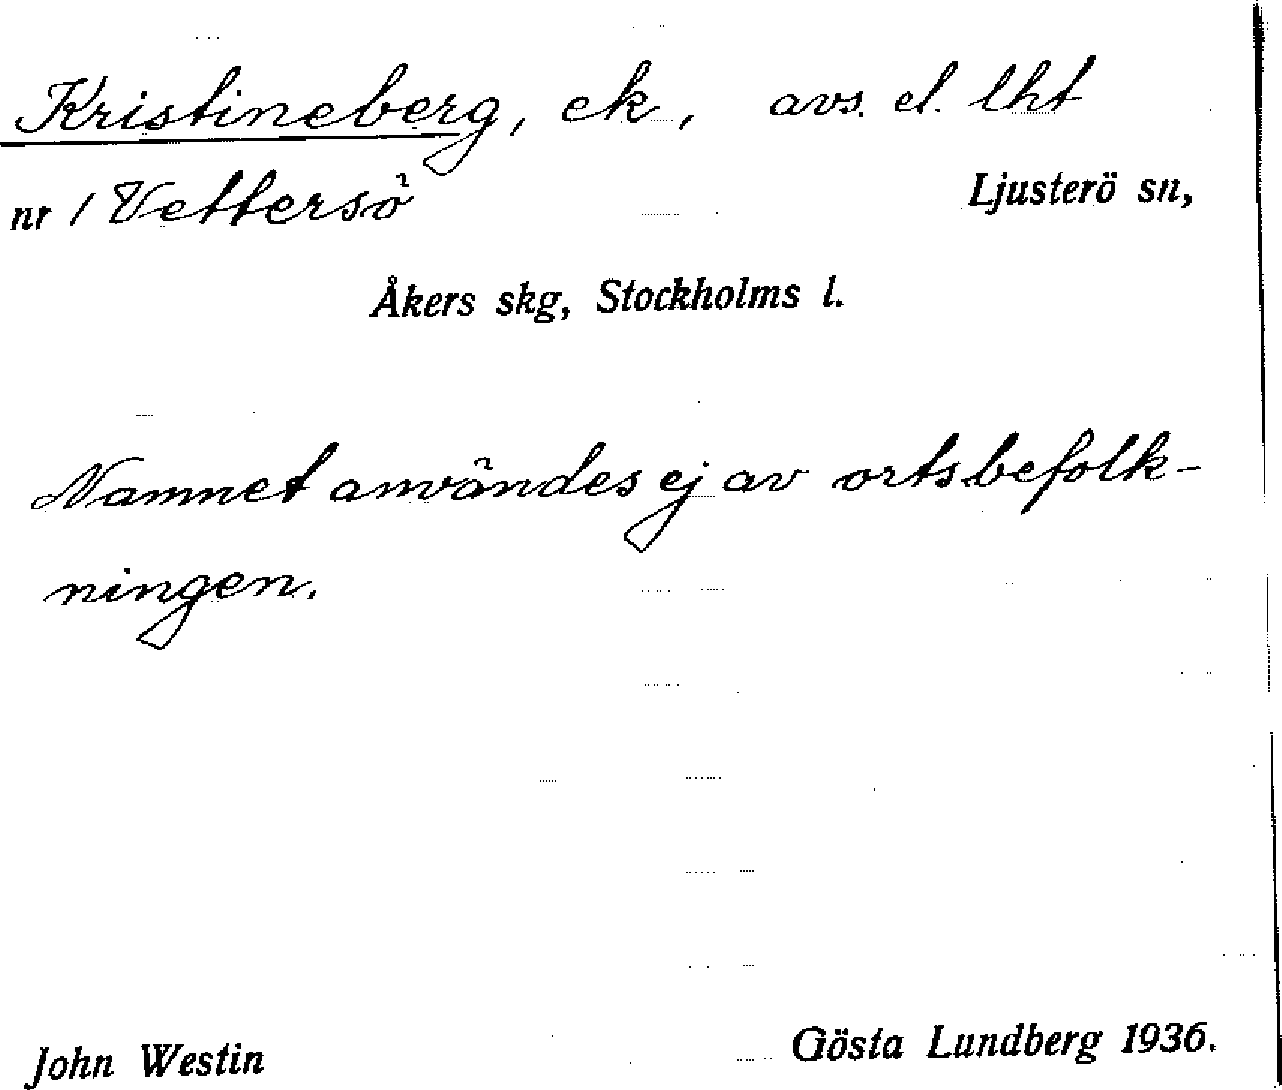 Kristineberg, ek, avs. el. lht
nr 1 Vettersö Ljusterö sn,
Åkers skg, Stockholms l.
Namnet användes ej av ortsbefolk-
ningen.
John Westin Gösta Lundberg 1936.